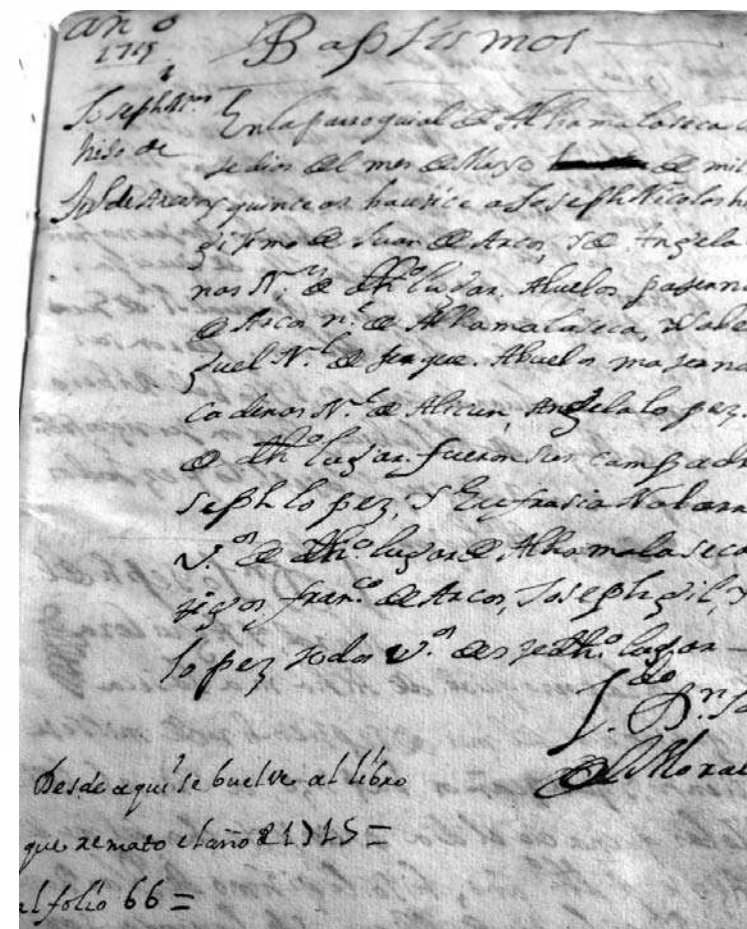 año
1715
Baptismos
Joseph Nicos
hijo de
Ju de Arcos
En la parroquial de Alhamalaseca a
se dias del mes de Mayo de mil
y quince as bautice a Joseph Nicolas h
gitimo de Juan de Arcos, y de Angela
nas N.s de dho lugar. Abuelos patern
de Arcos n.l de Alhamalaseca, Ysabe
guel N.l de . Abuelos materna
Cadenas N.l de Alicun, Angela lopez,
de dho lugar. fueron sus compadr
seph lopez, y Eufrasia Nabarr
v.os de dho lugar de Alhamalaseca
tigos fran.co de Arcos, Joseph gil, y
lopez todos v.os deste dho lugar
L.do D.n Jo
de Moral
Desde aqui se buelve al libro
que remato el año de 1715 =
al folio 66 =